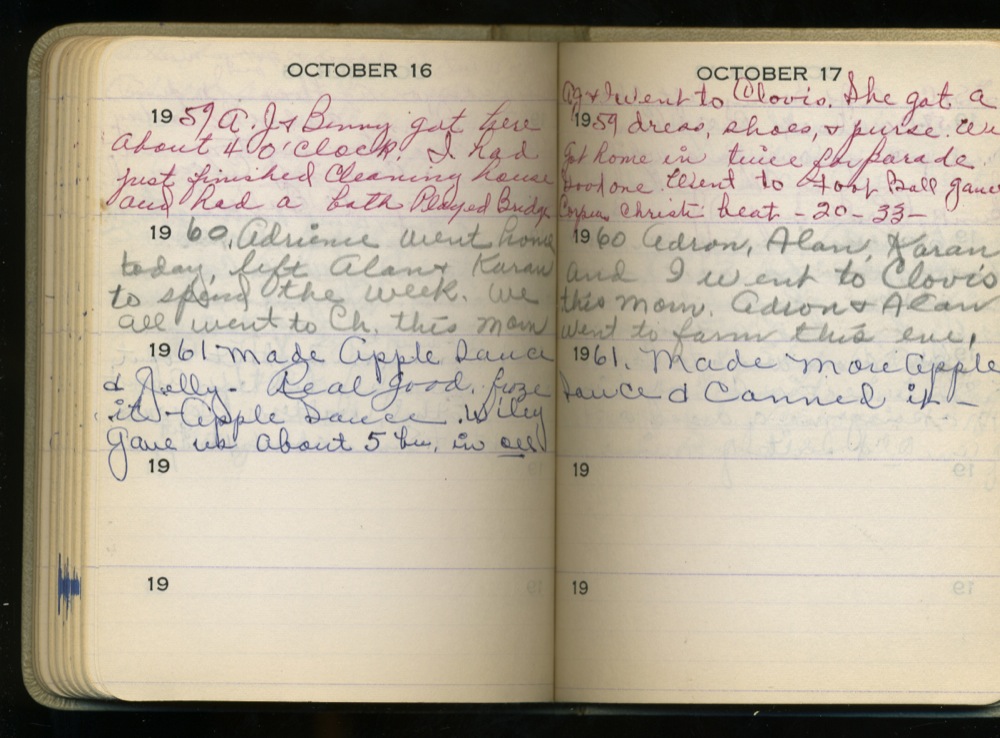 OCTOBER 16
1959 A.J. & Benny got here
about 4 O'clock. I had
just finished Cleaning house
and had a bath Played Bridge
1960, Adrienne went home
today, left Alan & Karan
to spend the week. We
all went to Ch. this morn
1961 Made Apple Sauce
& Jelly - Real good, froze
it - Apple Sauce. Wiley
Gave us about 5 bu. in all
19
19
OCTOBER 17
AJ & I went to Clovis. She got a
1959 dress, shoes, & purse. We
got home in time for parade
Good one Went to foot Ball game
Corpus Christi beat - 20 - 33 -
1960 Adron, Alan, Karan
and I went to Clovis
this Morn. Adron & Alan
went to farm this eve,
1961. Made More Apple
Sauce & Canned it -
19
19